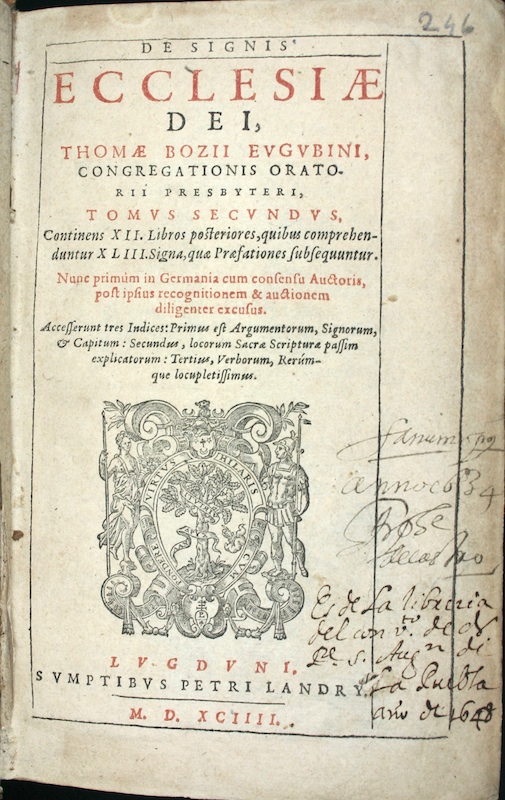 246
DE SIGNIS
ECCLESIÆ
DEI,
THOMÆ BOZII EVGVBINI,
CONGREGATIONIS ORATO-
RII PRESBYTERI,
TOMVS SECVNDVS,
Continens XII. Libros posteriores, quibus comprehen-
duntur XLIII. Signa, quæ Præfationes subsequuntur.
Nunc primùm in Germania cum consensu Auctoris,
post ipsius recognitionem & auctionem
diligenter excusus.
Accesserunt tres Indices: Primus est Argumentorum, Signorum,
& Capitum: Secundus, locorum Sacræ Scripturæ passim
explicatorum: Tertius, Verborum, Rerúm-
que locupletissimus.
VIRTVS HILARIS CVM
LVGDVNI,
SVMPTIBVS PETRI LANDRY.
M. D. XCIIII.
anno
Es de La libreria
del conv.to de N
P.e S. Aug.n di
La Puebla
año de 1648